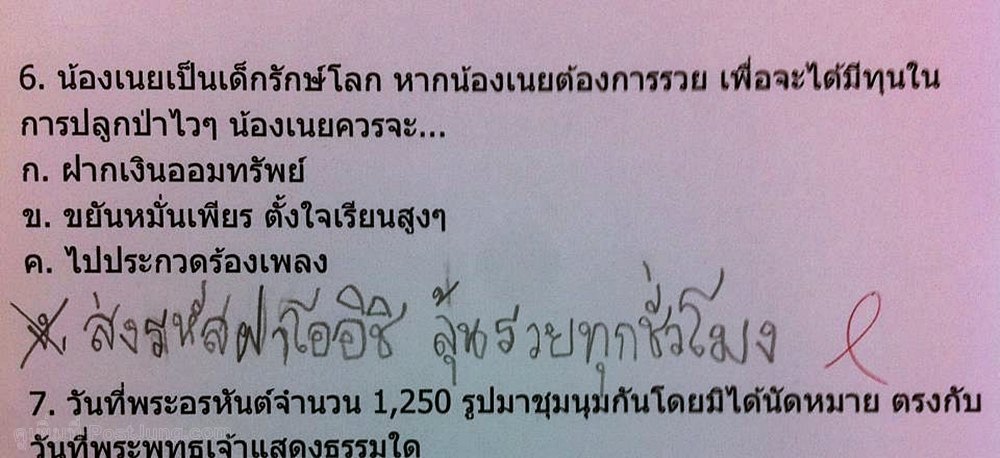 6. น้องเนยเป็นเด็กรักษ์โลก หากน้องเนยต้องการรวย เพื่อจะได้มีทุนใน
การปลูกป่าไวๆ น้องเนยควรจะ...
ก. ฝากเงินออมทรัพย์
ข. ขยันหมั่นเพียร ตั้งใจเรียนสูงๆ
ค. ไปประกวดร้องเพลง
ส่งรหัสฝาโออิชิ ลุ้นรวยทุกชั่วโมง
7. วันที่พระอรหันต์จำนวน 1,250 รูปมาชุมนุมกันโดยมิได้นัดหมาย ตรงกับ
วันที่พระพุทธเจ้าแสดงธรรมใด
PostJung.com